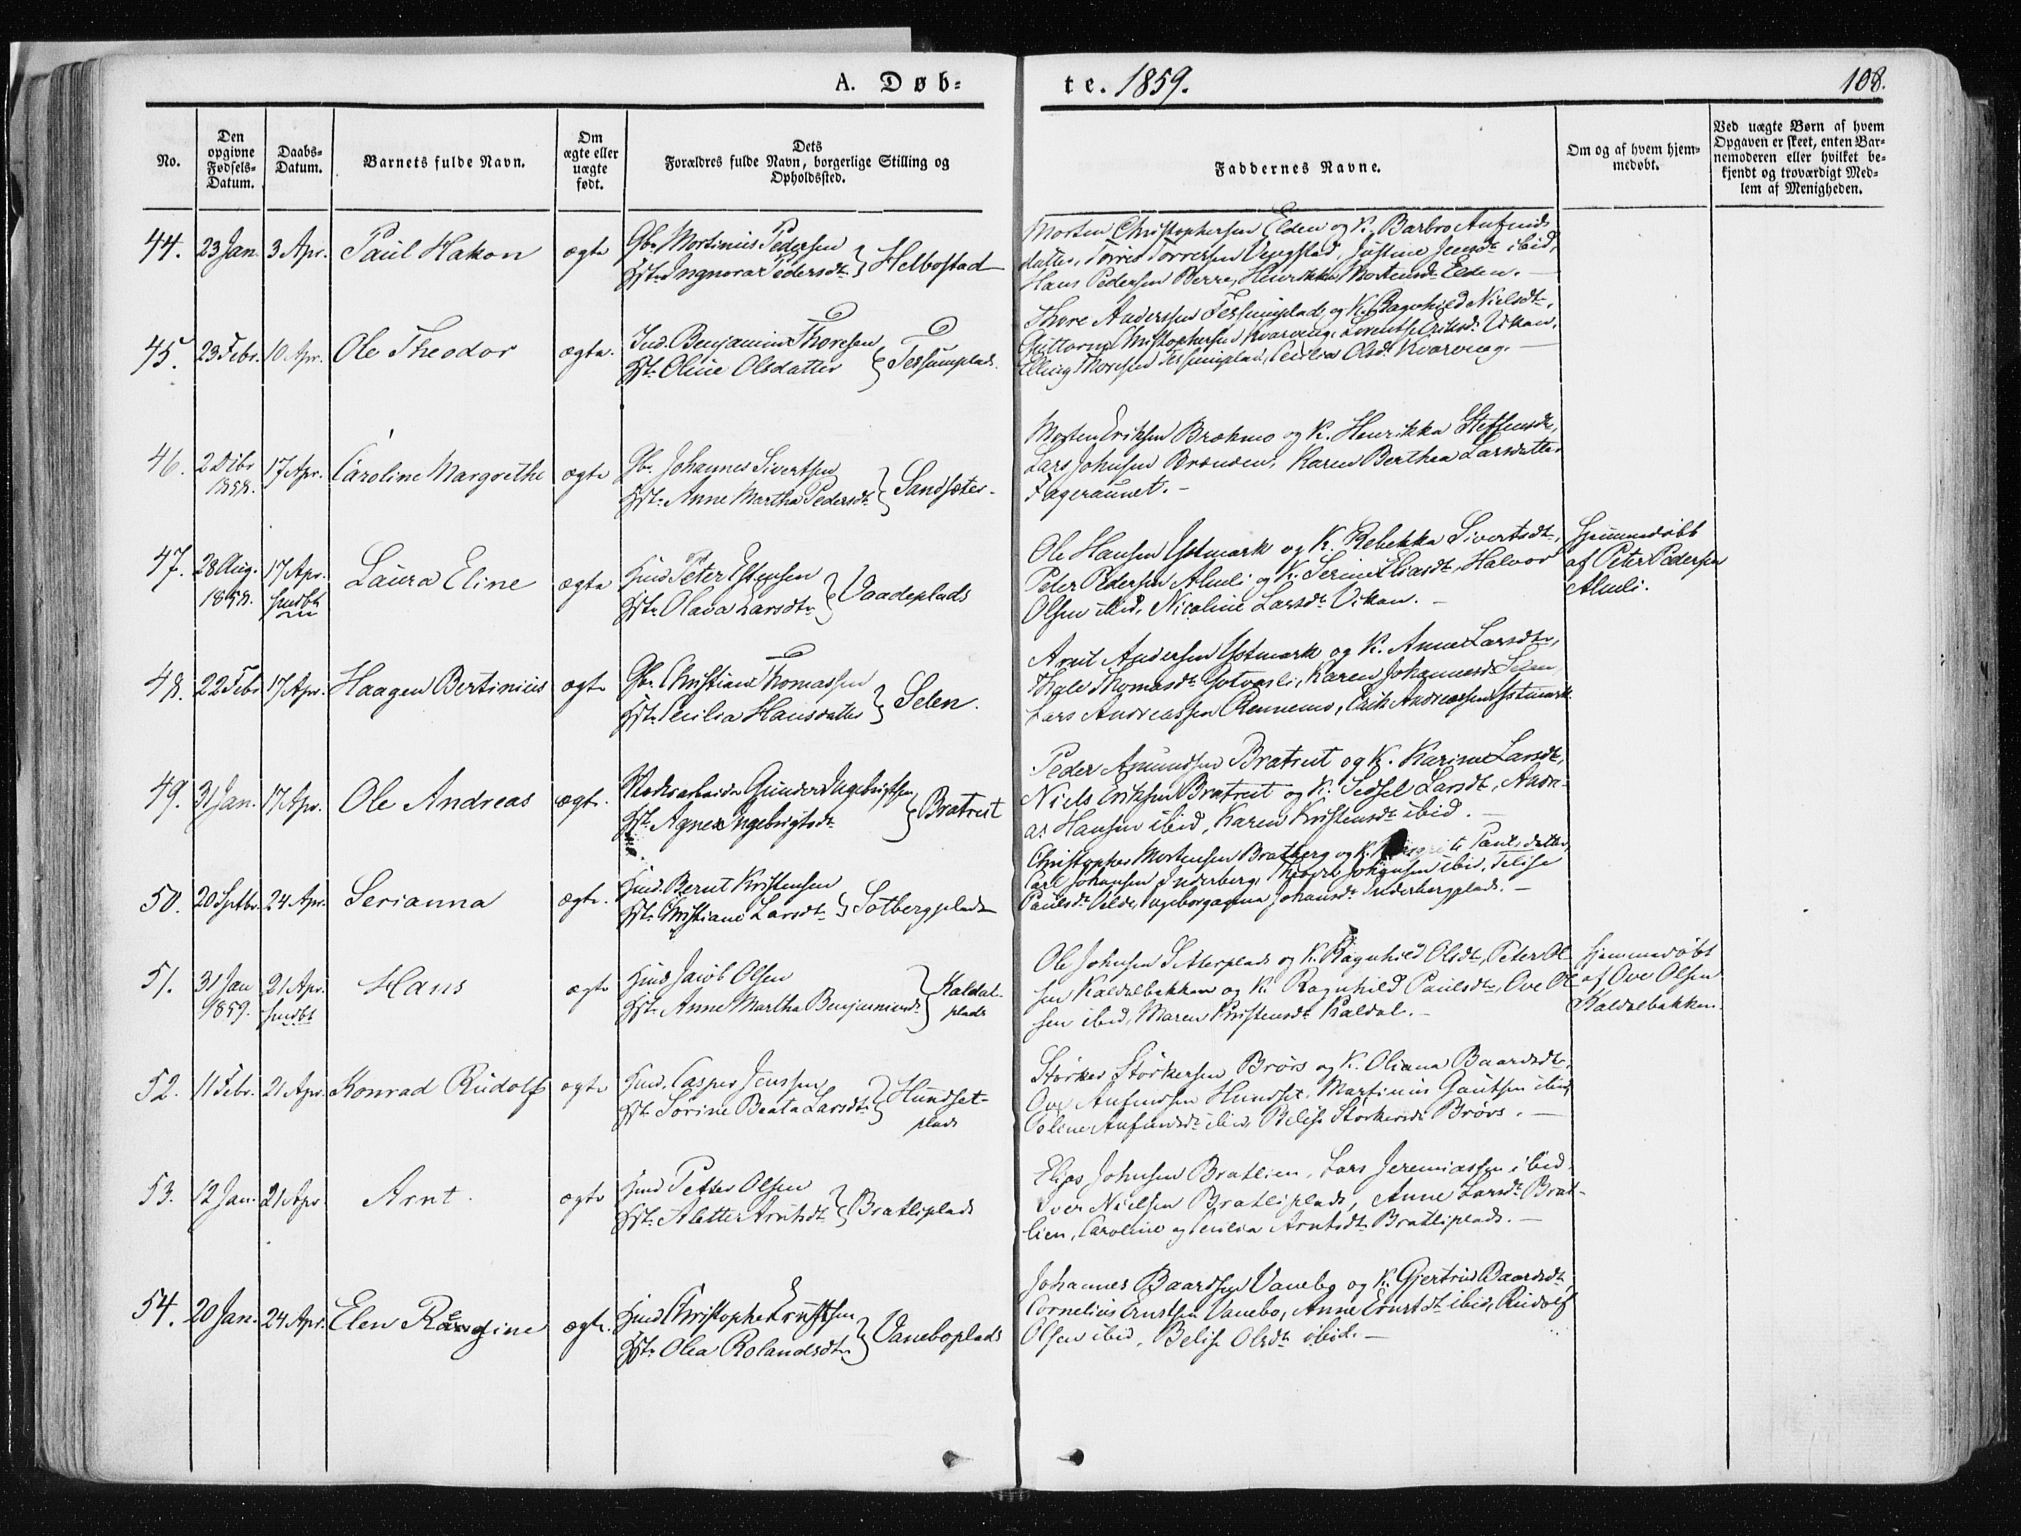 A. Døb-
te. 1859.
108.
No.
Den opgivne Fødsels-Datum.
Daabs-Datum.
Barnets fulde Navn.
Om ægte eller uægte født.
Dets Forældres fulde Navn, borgerlige Stilling og Opholdssted.
Faddernes Navne.
Om og af hvem hjem-medøbt.
Ved uægte Børn af hvem Opgaven er skeet, enten Bar-nemoderen eller hvilket be-kjendt og troværdigt Med-lem af Menigheden.
44. 23 Jan. 3 Apr. Paul Hakon ægte Gbr. Mortinus Pedersen
Hst. Ingnora Pedersdt. } Helbostad
Morten Christophersen Elden og K. Barbro Anfinds
datter, Torris Torresen Vengstad, Justine Jensdt. ibid,
Hans Pedersen Berre, Henrikka Mortensdt. Elden. -
45. 23 Febr. 10 Apr. Ole Theodor ægte. Ind. Benjamin Thoresen
Hst. Oline Olsdatter } Tessemplads.
Thore Andersen Tessemplads og K. Ragnhild Nielsdt.,
Guttorm Christophersen Kvarveng, Vikan,
Elling Thoresen Tessemplads, Cecilia Olsdt. Kvarveng. -
46. 2 Dcbr 1858. 17 Apr. Caroline Margrethe ægte Gbr. Johannes Sivertsen
Hst. Anne Martha Pedersdt. } Sandseter.
Morten Eriksen Bræhmo og K. Henrikka Steffensdt.,
Lars Johnsen Brænden, Karen Berthea Larsdatter
Fageraunet. -
47. 28 Aug. 1858. 17 Apr. Laura Eline ægte Hmd Peter
Hst. Olava Larsdtr } Vaadeplads
Ole Hansen Ystmark og K. Rebekka Sivertsdt.,
Peter Pedersen Almli og K. Serine Eliasdt., Halvor
Olsen ibid, Nicoline Larsdt. Vikan. -
Hjemmedøbt
af Peter Pedersen
Almli.
48. 22 Febr 17 Apr. Haagen Bertinius ægte Gbr. Christian Thomassen
Hst. Cecilia Hansdatter } Selen.
Arnt Andersen Ystmark og K. Anne Larsdtr,
Thomasdt. Karen Johannesdt. Selen
Lars Andreassen Rennemo, Erik Andreassen Ystmark
49. 31 Jan. 17 Apr. Ole Andreas ægte. Gunder Ingebrigtsen
Hst. Agnes Ingebrigtsdt. } Bratreit
Peder Amundsen Bratreit og K. Karine Larsdt.,
Niels Eriksen Bratreit og K. Sedsel Larsdt., Andre-
as Hansen ibid, Karen Kristensdt. ibid. -
50. 20 Septbr. 24 Apr. Serianna ægte. Hmd. Bernt Kristensen
Hst. Christiane Larsdt. } Solbergplads
Christopher Mortensen Bratberg og K. Pauls datter,
Carl Johansen Inderberg, Johansen ibid, Telise
Paulsdt. Velde, Ingeborganna Johansdt. Inderbergplads. -
51. 31 Jan 1859. 21 Apr. Hans ægte Hmd Jacob Olsen
Hst. Anne Martha Benjaminsdt. } Kaldal-
plads
Ole Johnsen Setterplads og K. Ragnhild Olsdt., Peter Ol-
sen Kaldalbakken og K. Ragnhild Paulsdt., Ove Ol-
sen ibid, Maren Kristensdt. Kaldal. -
Hjemmedøbt
af Ove Olsen
Kaldalbakken.
52. 11 Febr. 21 Apr. Konrad Rudolf ægte Hmd. Casper Jenssen
Hst. Sørine Beata Larsdt. } Hundset-
plads
Størker Størkersen Brørs og K. Oliana Baardsdt.,
Ove Anfindsen Hundset, Martinus Gautsen ibid,
Anfindsdt. ibid, Belise Størkersdt. Brørs. -
53. 12 Jan. 21 Apr. Arnt. ægte Hmd Petter Olsen
Hst. Aletter Arntsdt. } Bratliplads
Elias Johnsen Bratlien, Lars Jeremiassen ibid.
Iver Nielsen Bratliplads, Anne Larsdt. Brat-
lien, Caroline og Cecilia Arntsdt. Bratliplads. -
54. 20 Jan. 24 Apr. Elen Regine ægte. Hmd Christopher Ernstsen
Hst. Olea Rolandsdtr } Vaneboplads
Johannes Baardsen Vanebo og K. Gjertrud Baardsdt.,
Cornelius Ernstsen Vanebo, Anne Ernstdt. ibid, Rudolf
Olsen ibid, Belise Olsdt. ibid. -